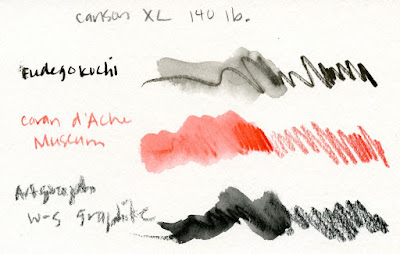 canson XL 140 lb.
Fudegokochi
caran d'Ache
Museum
Artgraph
w-s graphite